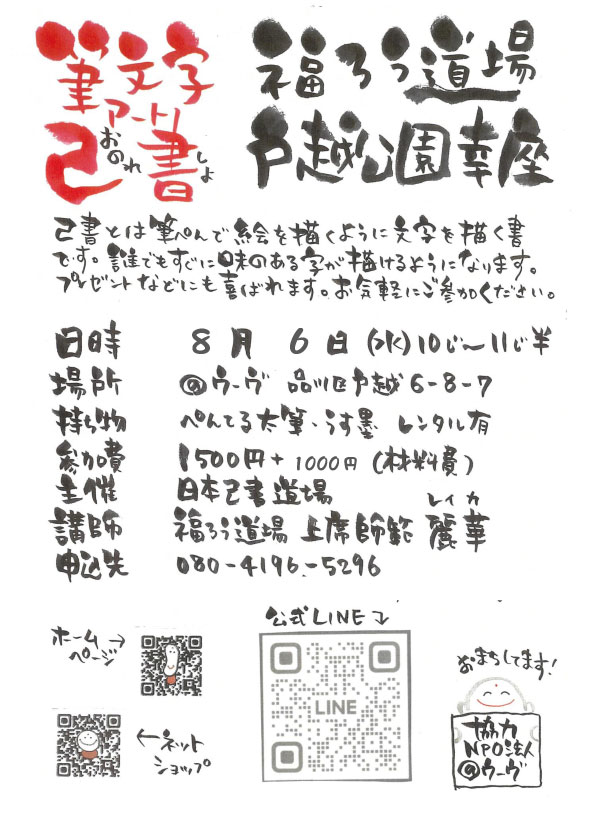 筆文字
アート
己書
おのれ
しょ
福ろう道場
戸越公園幸座
己書とは筆ぺんで絵を描くように文字を描く書
です。誰でもすぐに味のある字が描けるようになります。
プレゼントなどにも喜ばれます。お気軽にご参加ください。
日時 8月6日(水)10じ〜11じ半
場所 @ウーヴ 品川区戸越6-8-7
持ち物 ぺんてる太筆・うす墨 レンタル有
参加費 1500円+1000円(材料費)
主催 日本己書道場
レイカ
講師 福ろう道場 上席師範 麗華
申込先 080-4196-5296
公式LINE↓
ホーム→
ページ
LINE
おまちしてます!
←ネット
ショップ
協力
NPO法人
@ウーヴ